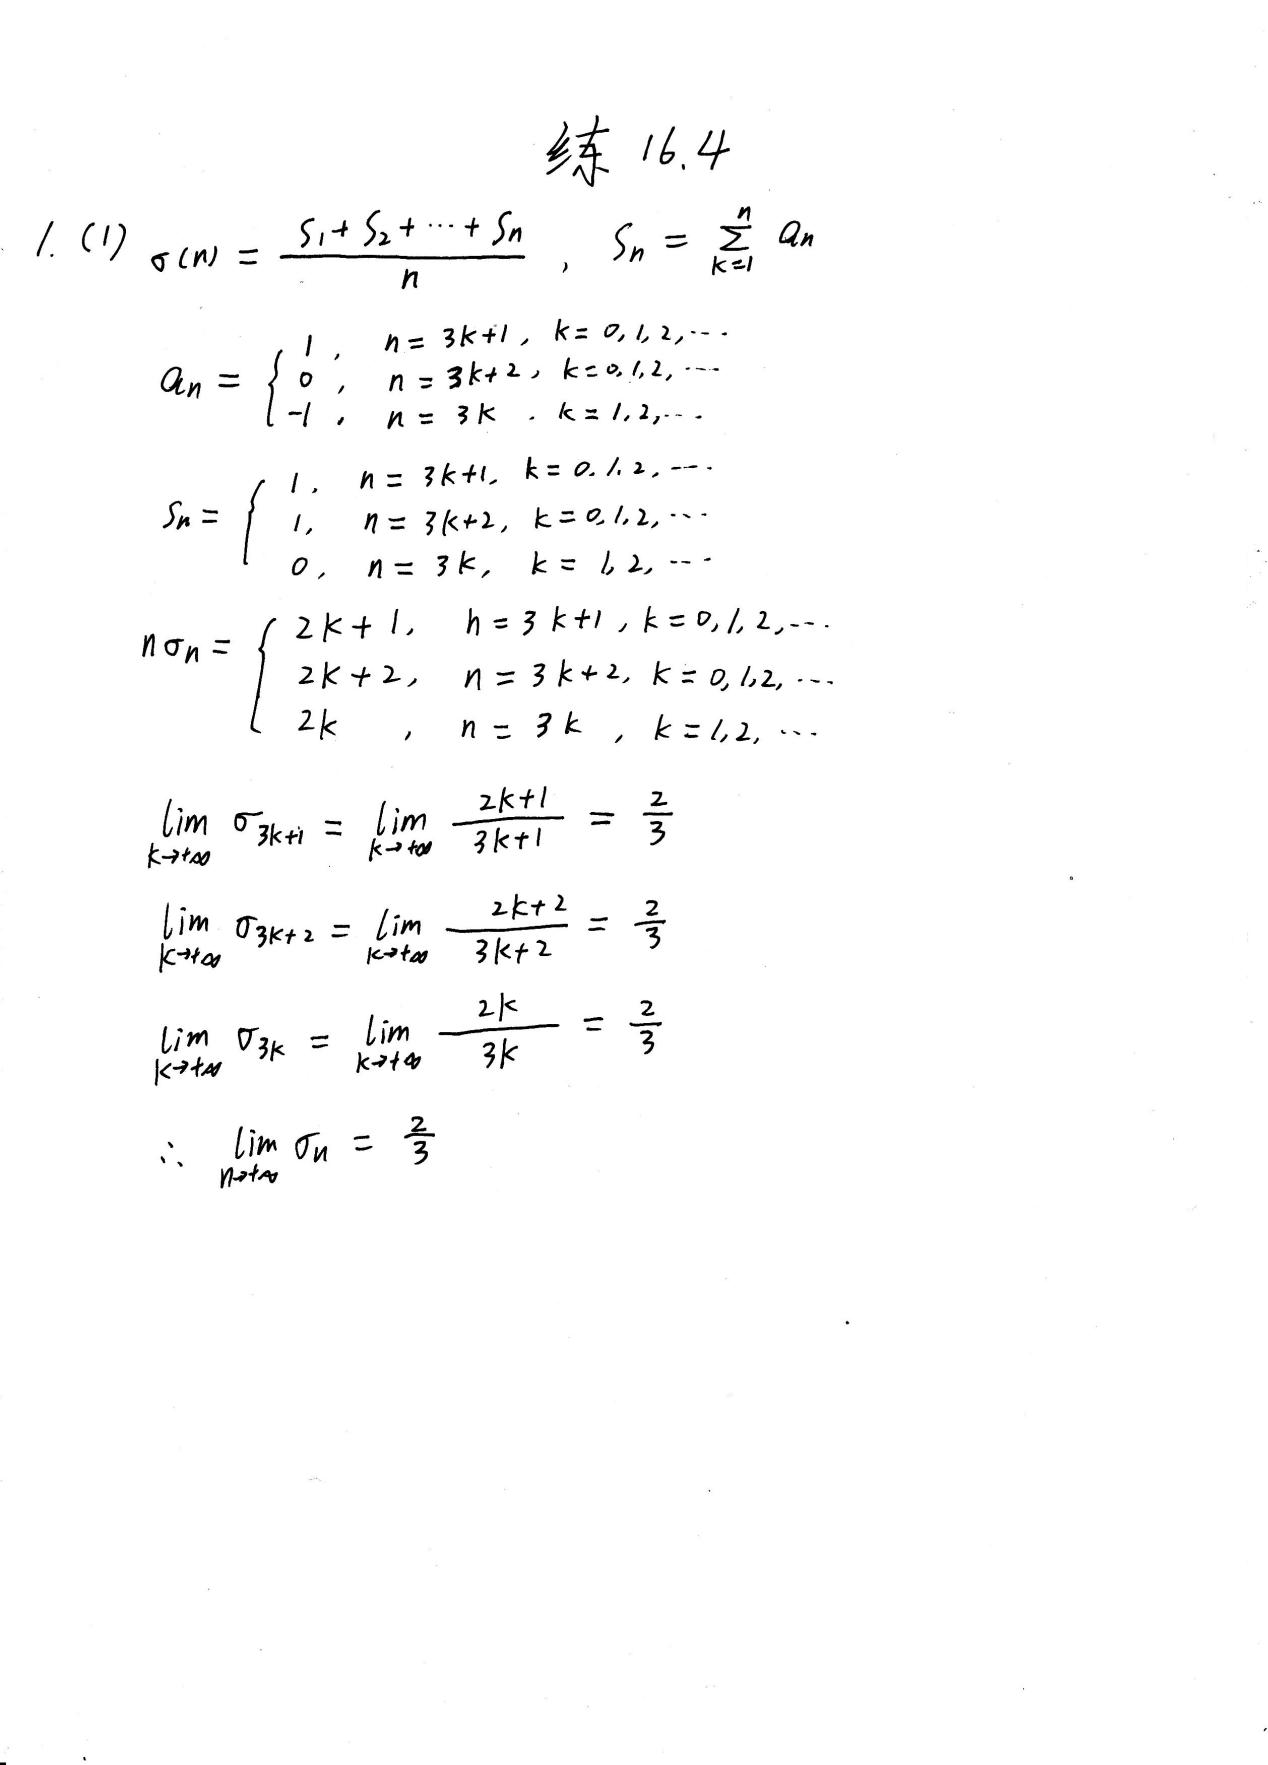 练 16.4
1. (1) σ(n) = \frac{S₁ + S₂ + ··· + Sn}{n} , Sn = \sum_{k=1}^{n} an
an = { 1 , n = 3k+1 , k = 0, 1, 2, ···
0 , n = 3k+2 , k = 0, 1, 2, ···
-1 , n = 3k . k = 1, 2, ···
Sn = { 1 , n = 3k+1, k = 0. 1. 2, ···
1, n = 3k+2, k = 0, 1, 2, ···
0, n = 3k, k = 1, 2, ···
nσn = { 2k+1, n = 3k+1 , k = 0, 1, 2, ···
2k+2, n = 3k+2, k = 0, 1, 2, ···
2k , n = 3k , k = 1, 2, ···
\lim_{k→+∞} σ_{3k+1} = \lim_{k→+∞} \frac{2k+1}{3k+1} = \frac{2}{3}
\lim_{k→+∞} σ_{3k+2} = \lim_{k→+∞} \frac{2k+2}{3k+2} = \frac{2}{3}
\lim_{k→+∞} σ_{3k} = \lim_{k→+∞} \frac{2k}{3k} = \frac{2}{3}
∴ \lim_{n→+∞} σn = \frac{2}{3}